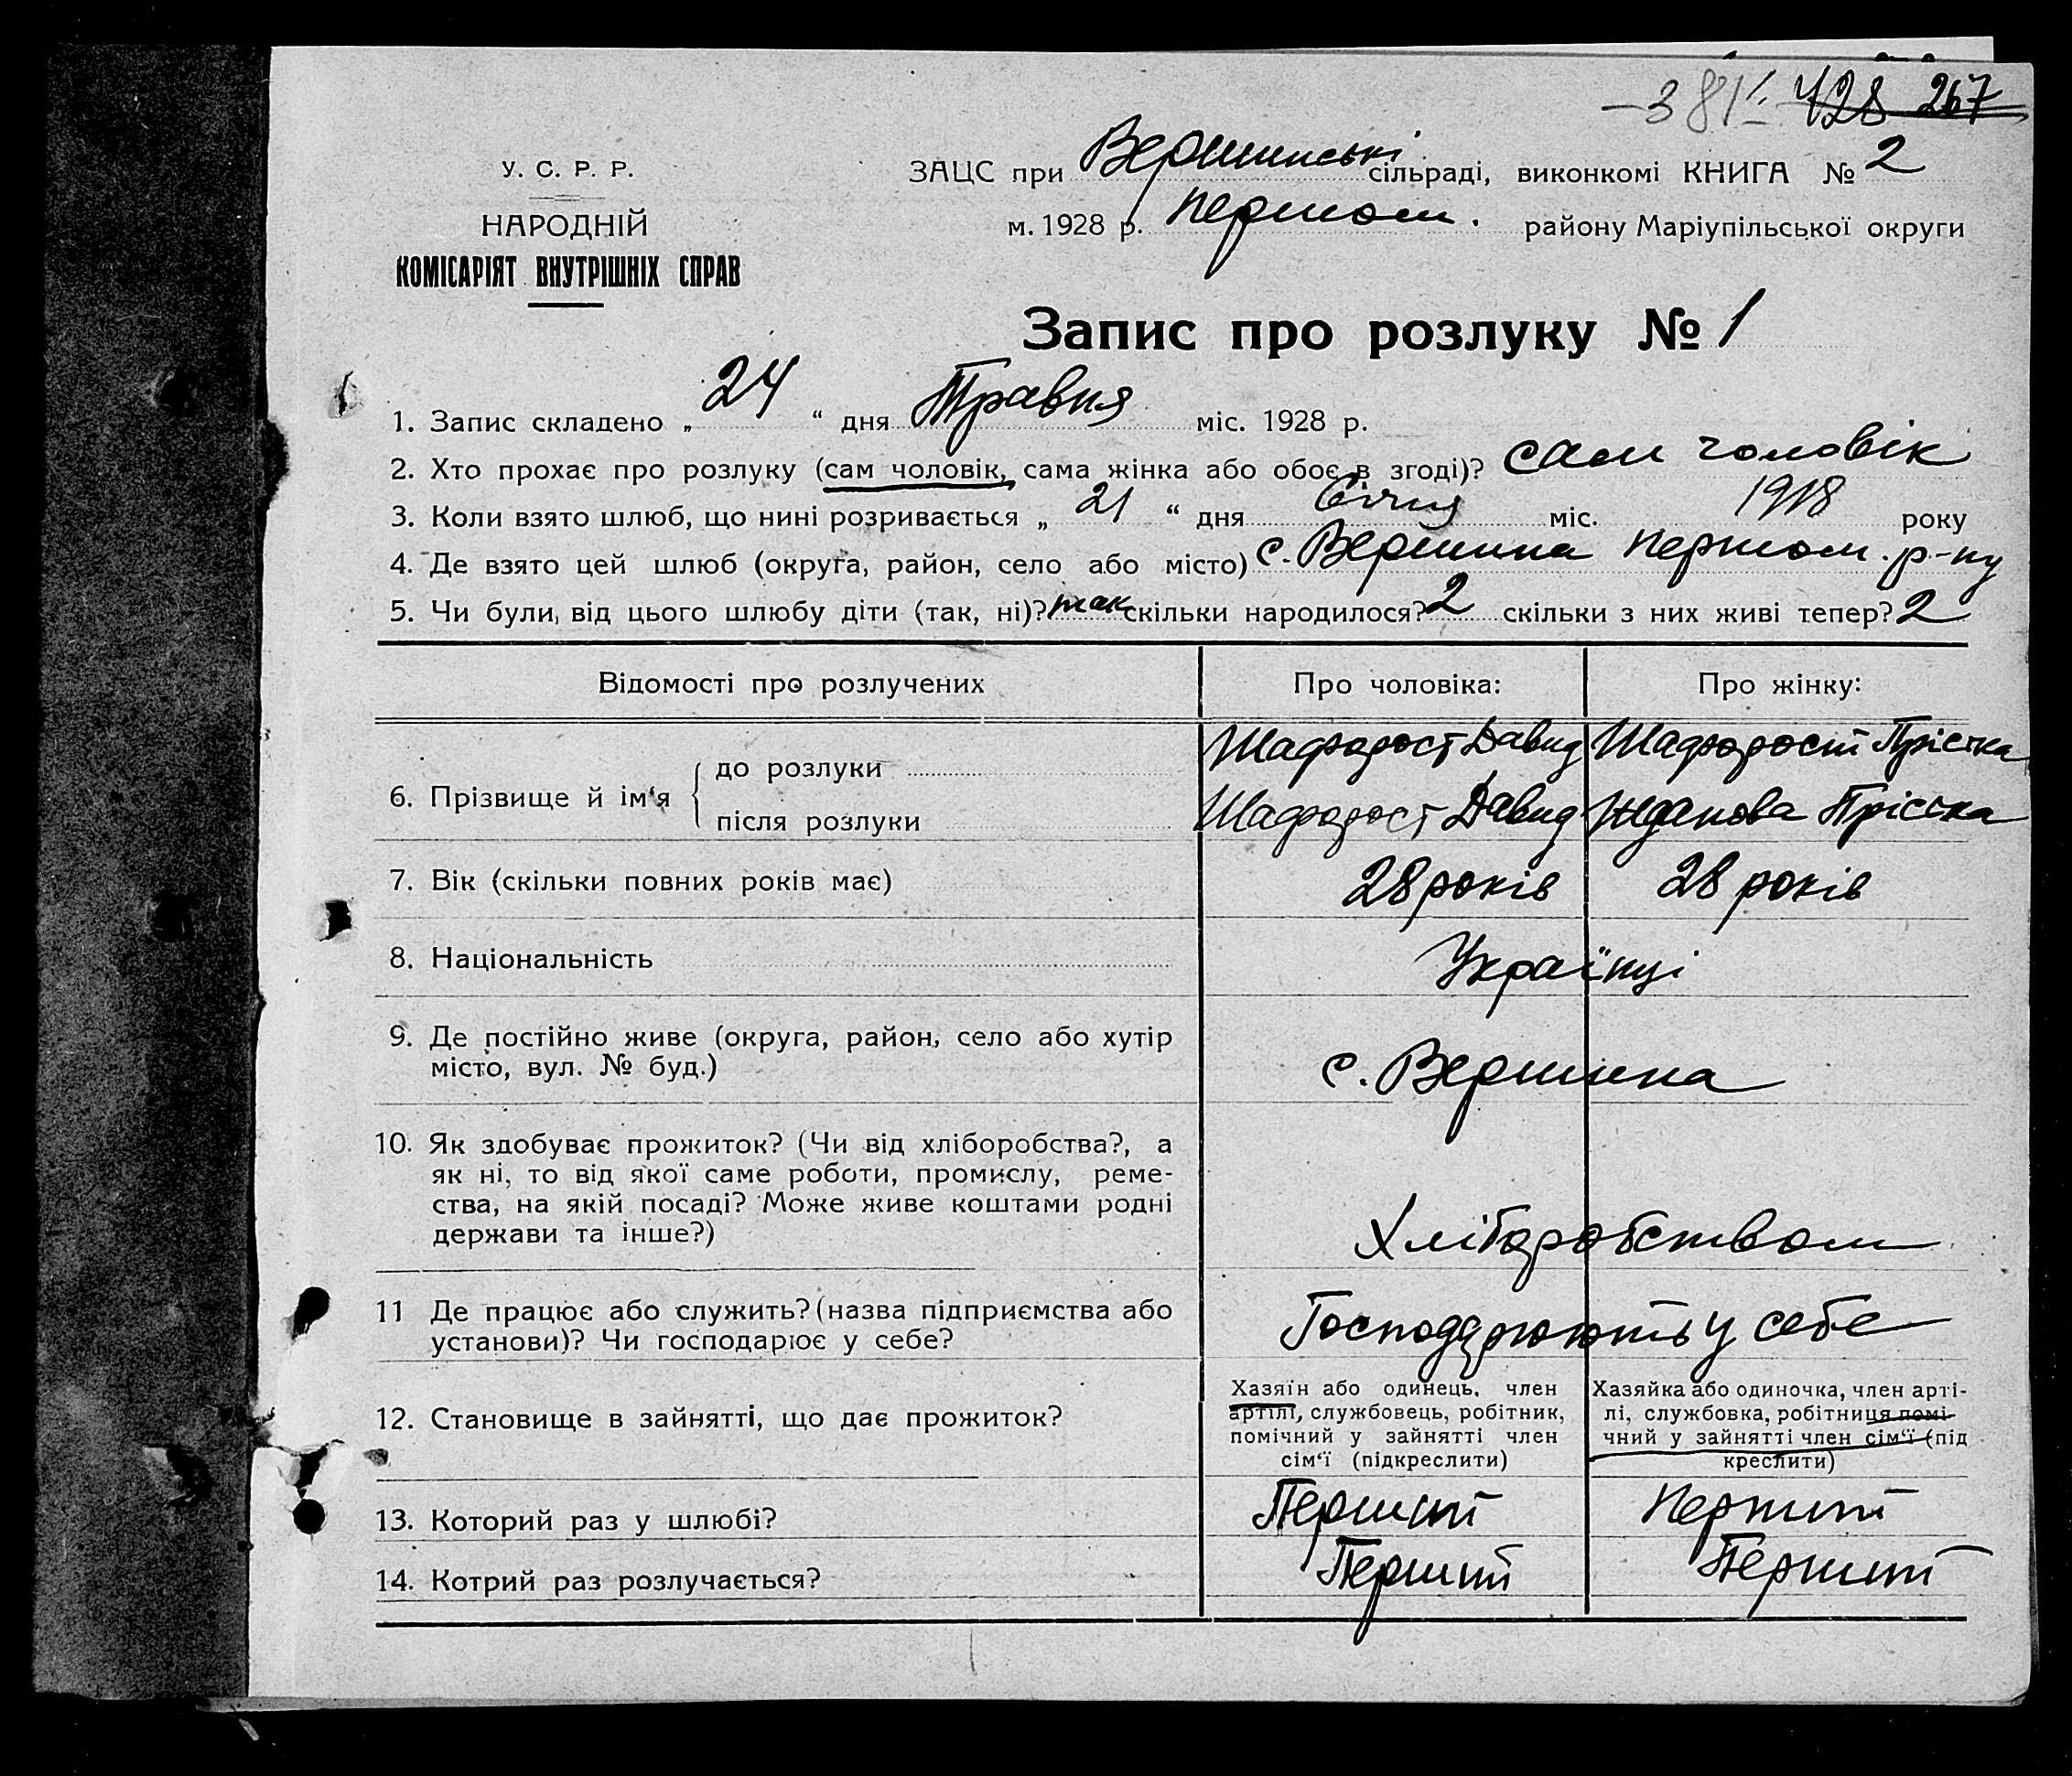 —381/. 428 267
У. С. Р. Р.
НАРОДНІЙ
КОМІСАРІЯТ ВНУТРІШНІХ СПРАВ
ЗАЦС при Вершинські сільраді, виконкомі КНИГА № 2
м. 1928 р. першом. району Маріупільської округи
Запис про розлуку № 1
1. Запис складено „ 24 “ дня Травня міс. 1928 р.
2. Хто прохає про розлуку (сам чоловік, сама жінка або обоє в згоді)? сам чоловік
3. Коли взято шлюб, що нині розривається „ 21 “ дня Січня міс. 1918 року
4. Де взято цей шлюб (округа, район, село або місто) с. Вершина першом. р-ну
5. Чи були від цього шлюбу діти (так, ні)? так скільки народилося? 2 скільки з них живі тепер? 2
Відомості про розлучених Про чоловіка: Про жінку:
6. Прізвище й ім‘я
до розлуки Шафорост Давид Шафорост Пріська
після розлуки Шафорост Давид Жданова Пріська
7. Вік (скільки повних років має) 28 років 28 років
8. Національність Українці
9. Де постійно живе (округа, район, село або хутір
місто, вул. № буд.) с. Вершина
10. Як здобуває прожиток? (Чи від хліборобства?, а
як ні, то від якої саме роботи, промислу, реме-
ства, на якій посаді? Може живе коштами родні
держави та інше?) Хліборобством
11 Де працює або служить? (назва підприємства або
установи)? Чи господарює у себе? Господарюють у себе
12. Становище в зайнятті, що дає прожиток?
Хазяїн або одинець, член
артілі, службовець, робітник,
помічний у зайнятті член
сім‘ї (підкреслити)
Хазяйка або одиночка, член арті-
лі, службовка, робітниця помі-
чний у зайнятті член сім‘ї (під
креслити)
13. Которий раз у шлюбі? Перший Перший
14. Котрий раз розлучається? Перший Перший